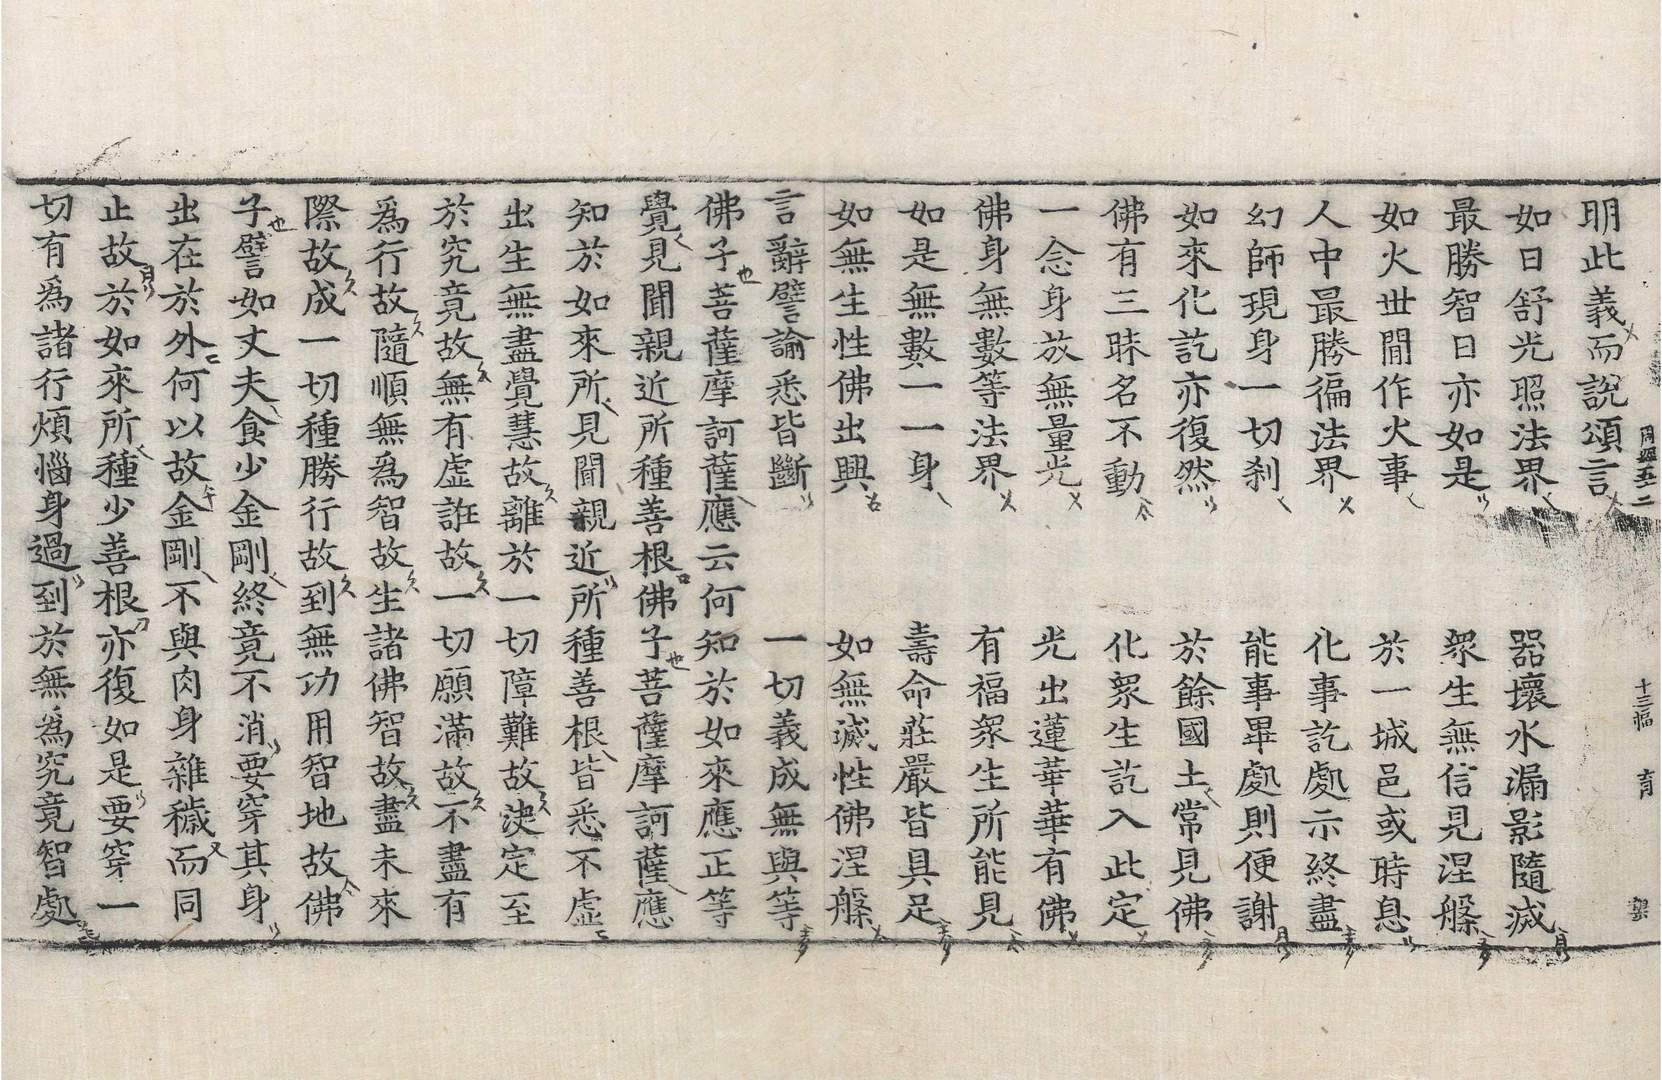 周經五二 十三幅 育
明此義而說頌言
如日舒光照法界 器壞水漏影隨滅
最勝智日亦如是 衆生無信見涅槃
如火世間作火事 於一城邑或時息
人中最勝徧法界 化事訖處示終盡
幻師現身一切刹 能事畢處則便謝
如來化訖亦復然 於餘國土常見佛
佛有三昧名不動 化衆生訖入此定
一念身放無量光 光出蓮華華有佛
佛身無數等法界 有福衆生所能見
如是無數一一身 壽命莊嚴皆具足
如無生性佛出興 如無滅性佛涅槃
言辭譬諭悉皆斷 一切義成無與等
佛子菩薩摩訶薩應云何知於如來應正等
覺見聞親近所種善根佛子菩薩摩訶薩應
知於如來所見聞親近所種善根皆悉不虛
出生無盡覺慧故離於一切障難故決定至
於究竟故無有虛誑故一切願滿故不盡有
爲行故隨順無爲智故生諸佛智故盡未來
際故成一切種勝行故到無功用智地故佛
子譬如丈夫食少金剛終竟不消要穿其身
出在於外何以故金剛不與肉身雜穢而同
止故於如來所種少善根亦復如是要穿一
切有爲諸行煩惱身過到於無爲究竟智處